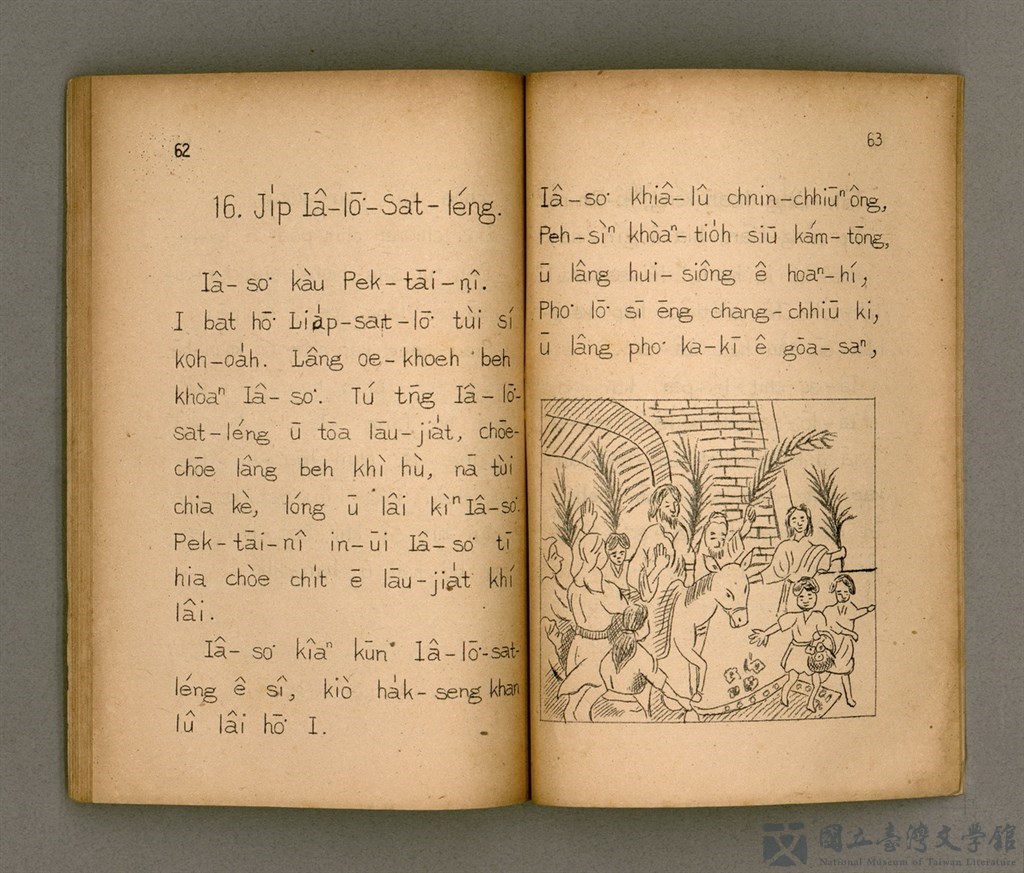 62
16. Ji̍p Iâ-lō͘-Sat-léng.
Iâ-so͘ kàu Pek-tāi-nî.
I bat hō͘ Lia̍p-sat-lō͘ tùi sí
koh-oa̍h. Lâng oe-khoeh beh
khòaⁿ Iâ-so͘. Tú tn̄g Iâ-lō͘-
sat-léng ū tōa lāu-jia̍t, chōe-
chōe lâng beh khì hù, nā tùi
chia kè, lóng ū lâi kìⁿ Iâ-so͘.
Pek-tāi-nî in-ūi Iâ-so͘ tī
hia chòe chi̍t ē lāu-jia̍t khí
lâi.
Iâ-so͘ kîaⁿ kūn Iâ-lō͘-sat-
léng ê sî, kiò ha̍k-seng khan
lû lâi hō͘ I.
63
Iâ-so͘ khiâ-lû chnin-chhiūⁿ ông,
Peh-sìⁿ khòaⁿ-tio̍h siū kám-tōng,
ū lâng hui-siông ê hoaⁿ-hí,
Pho͘ lō͘ sī ēng chang-chhiū ki,
ū lâng pho͘ ka-kī ê gōa-saⁿ,
國立臺灣文學館
National Museum of Taiwan Literature